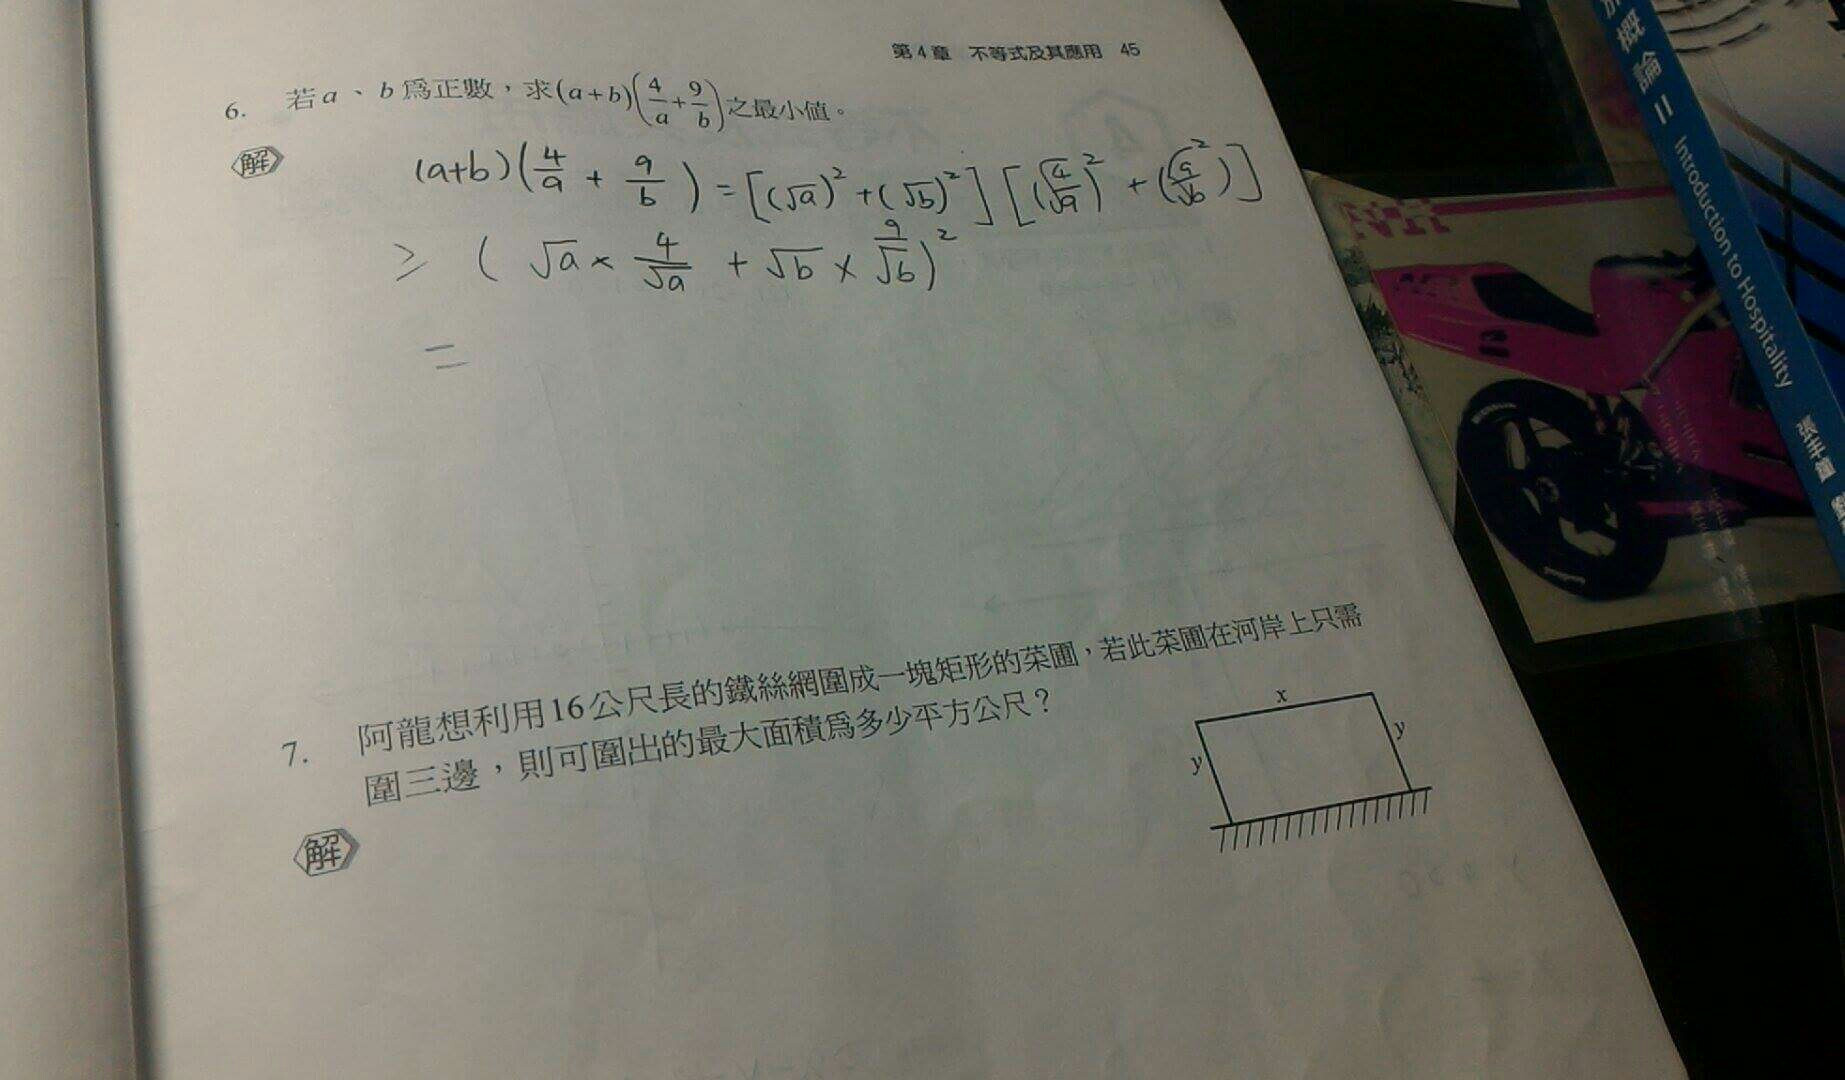 第4章 不等式及其應用 45
6. 若a、b為正數,求(a+b)(4/a+9/b)之最小值。
解
(a+b)(4/a + 9/b) = [(√a)²+(√b)²][(√4/√a)² + (√9/√b)²]
≥ (√a × 4/√a + √b × 9/√b)²
=
7. 阿龍想利用16公尺長的鐵絲網圍成一塊矩形的菜圃,若此菜圃在河岸上只需
圍三邊,則可圍出的最大面積為多少平方公尺?
x
y
y
解
概論 II Introduction to Hospitality